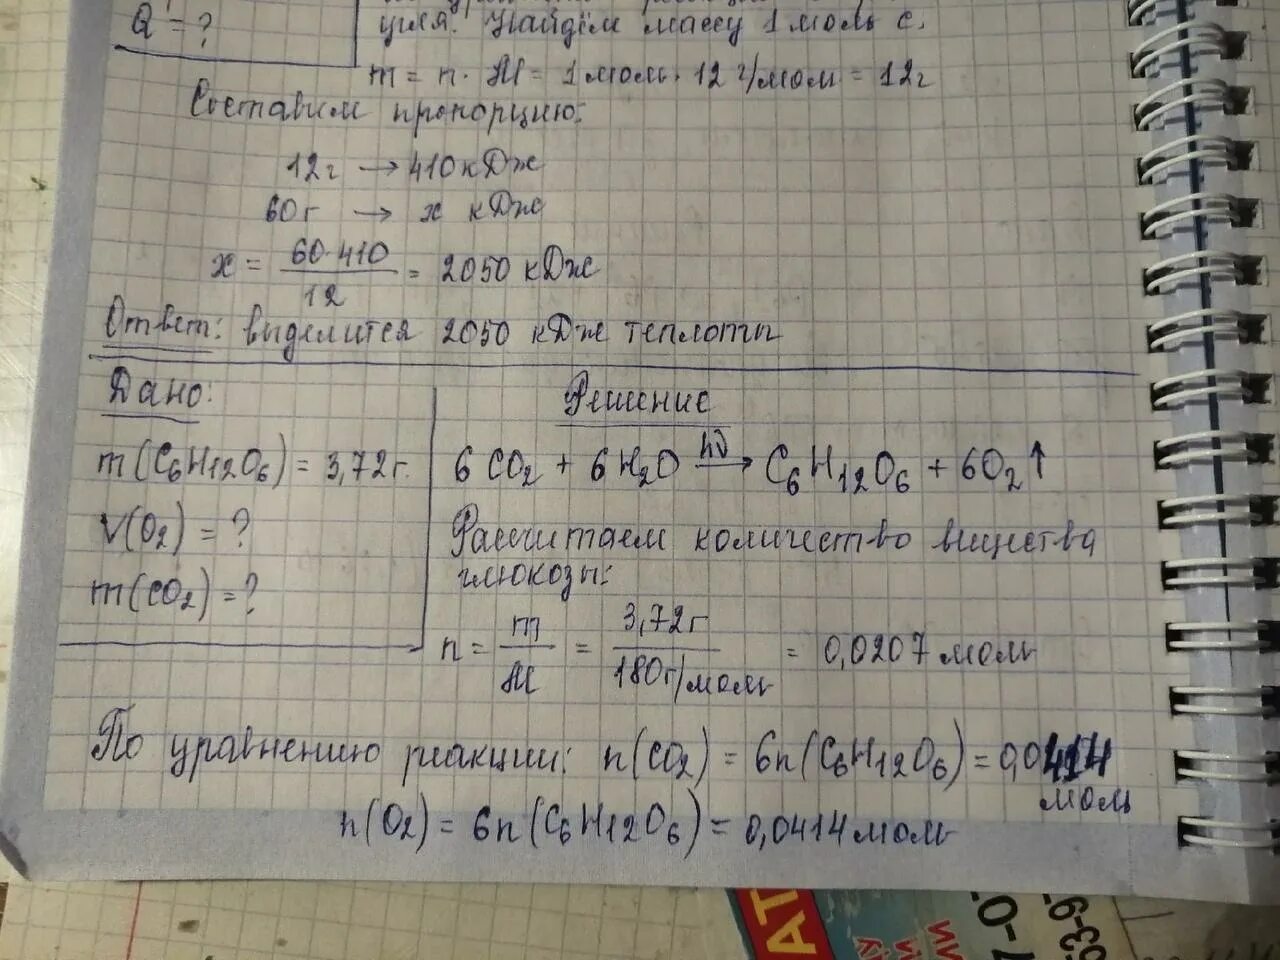 угля. Найдём массу 1 моль C.
Q = ?
m = n · M = 1 моль · 12 г/мол = 12г
Составим пропорцию:
12г → 410 кДж
60г → x кДж
x = 60·410 / 12 = 2050 кДж
Ответ: выделится 2050 кДж теплоты
Дано:
m(C6H12O6) = 3,72г.
V(O2) = ?
m(CO2) = ?
Решение
6CO2 + 6H2O hν → C6H12O6 + 6O2↑
Рассчитаем количество вещества
глюкозы:
n = m / M = 3,72г / 180г/моль = 0,0207 моль
По уравнению реакции: n(CO2) = 6n(C6H12O6) = 0,0414
моль
n(O2) = 6n(C6H12O6) = 0,0414 моль
АТ
ИИ
7-0
53-9